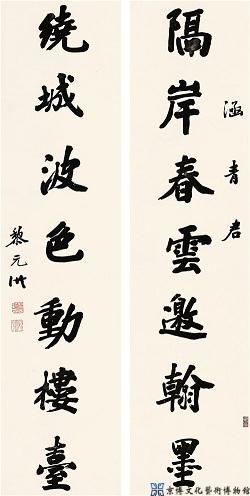 涵青君
隔岸春雲邀翰墨
繞城波色動樓臺
黎元洪
京博文化藝術博物館